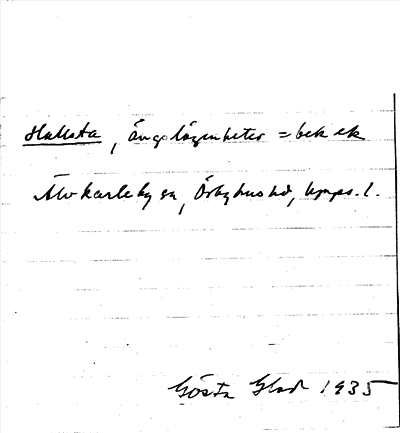 Hallsta, ängslägenheter = bek ek
Älvkarleby sn, Örbyhus hd, Upps. l.
Gösta Glad 1935